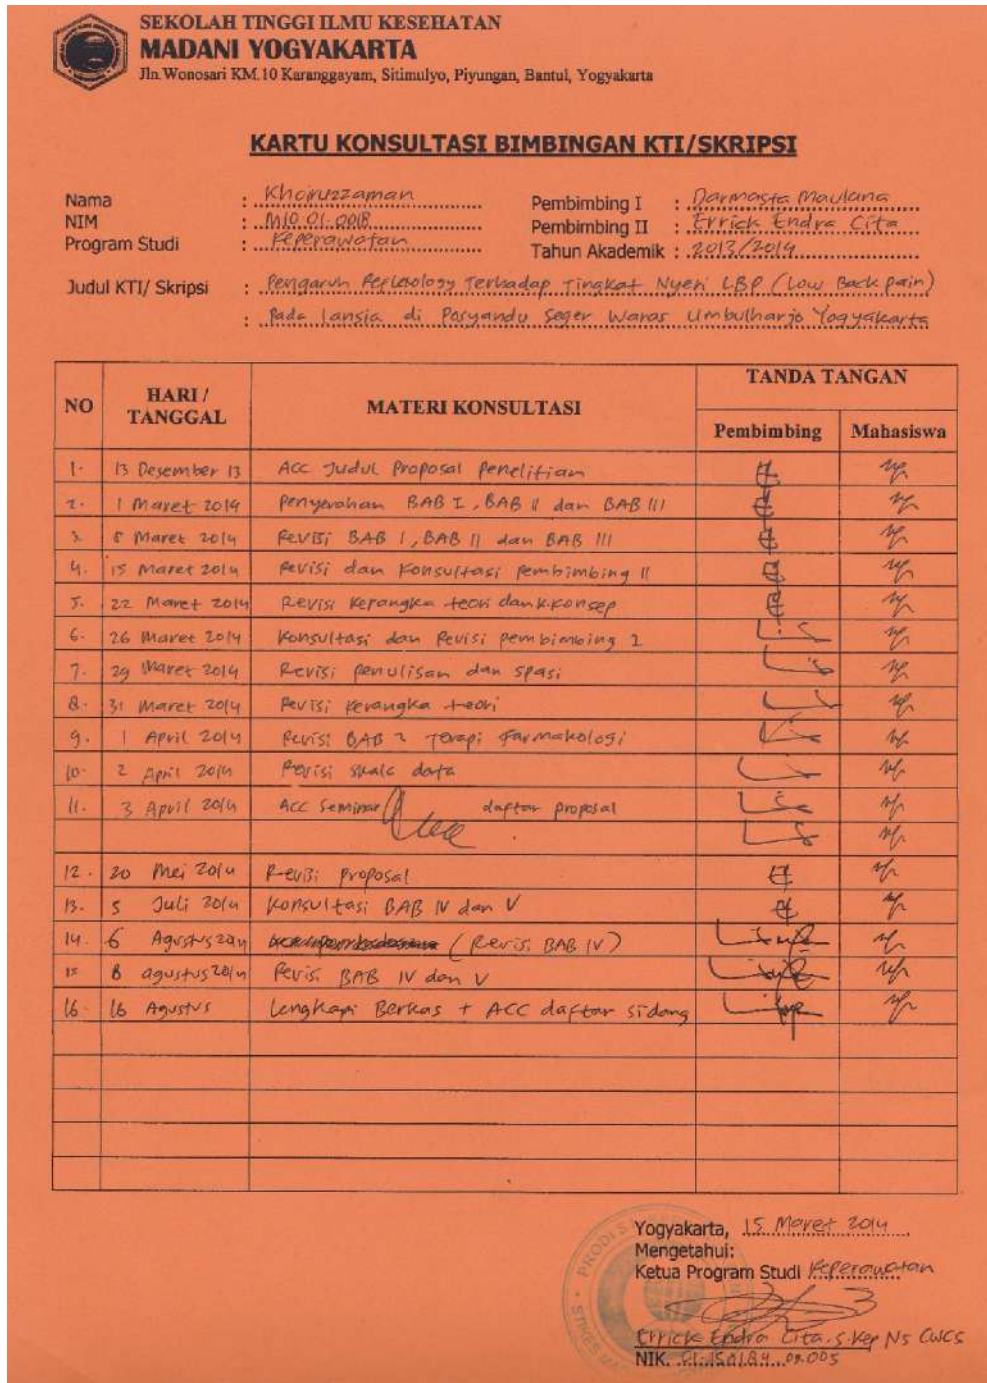 SEKOLAH TINGGI ILMU KESEHATAN
MADANI YOGYAKARTA
Jln.Wonosari KM.10 Karanggayam, Sitimulyo, Piyungan, Bantul, Yogyakarta
KARTU KONSULTASI BIMBINGAN KTI/SKRIPSI
Nama : Khoiruzzaman
Pembimbing I : Darmasta Maulana
NIM : M10.01.0018
Pembimbing II : Errick Endra Cita
Program Studi : Keperawatan
Tahun Akademik : 2013/2014
Judul KTI/ Skripsi : Pengaruh Reflexology Terhadap Tingkat Nyeri LBP (Low Back pain)
: Pada Lansia di Posyandu Seger Waras Umbulharjo Yogyakarta
NO HARI / TANGGAL MATERI KONSULTASI TANDA TANGAN
Pembimbing Mahasiswa
1. 13 Desember 13 ACC Judul Proposal Penelitian
2. 1 Maret 2014 Penyerahan BAB I, BAB II dan BAB III
3. 8 Maret 2014 Revisi BAB I, BAB II dan BAB III
4. 15 Maret 2014 Revisi dan Konsultasi Pembimbing II
5. 22 Maret 2014 Revisi Kerangka teori dan K.Konsep
6. 26 Maret 2014 Konsultasi dan Revisi pembimbing 1
7. 29 Maret 2014 Revisi penulisan dan spasi
8. 31 Maret 2014 Revisi Kerangka teori
9. 1 April 2014 Revisi BAB 2 Terapi Farmakologi
10. 2 April 2014 Revisi skala data
11. 3 April 2014 ACC Seminar daftar proposal
12. 20 Mei 2014 Revisi Proposal
13. 5 Juli 2014 Konsultasi BAB IV dan V
14. 6 Agustus 2014 (Revisi BAB IV)
15 8 agustus 2014 Revisi BAB IV dan V
16. 16 Agustus Lengkapi Berkas + ACC daftar sidang
Yogyakarta, 15 Maret 2014
Mengetahui:
Ketua Program Studi Keperawatan
Errick Endra Cita.S.Kep Ns CWCS
NIK.